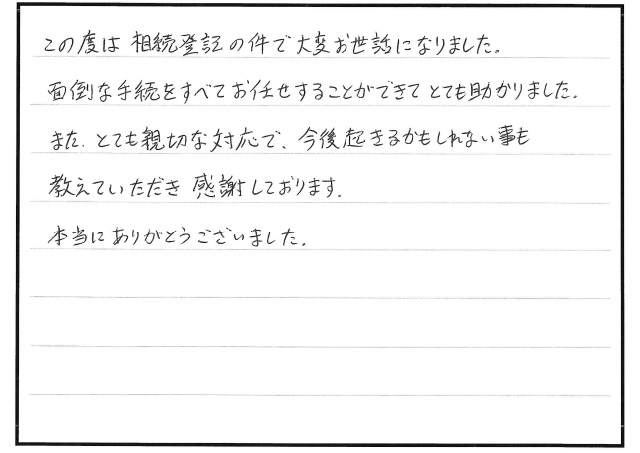 この度は 相続登記の件で大変お世話になりました。
面倒な手続をすべてお任せすることができてとても助かりました。
また、とても親切な対応で、今後起きるかもしれない事も
教えていただき 感謝しております。
本当にありがとうございました。